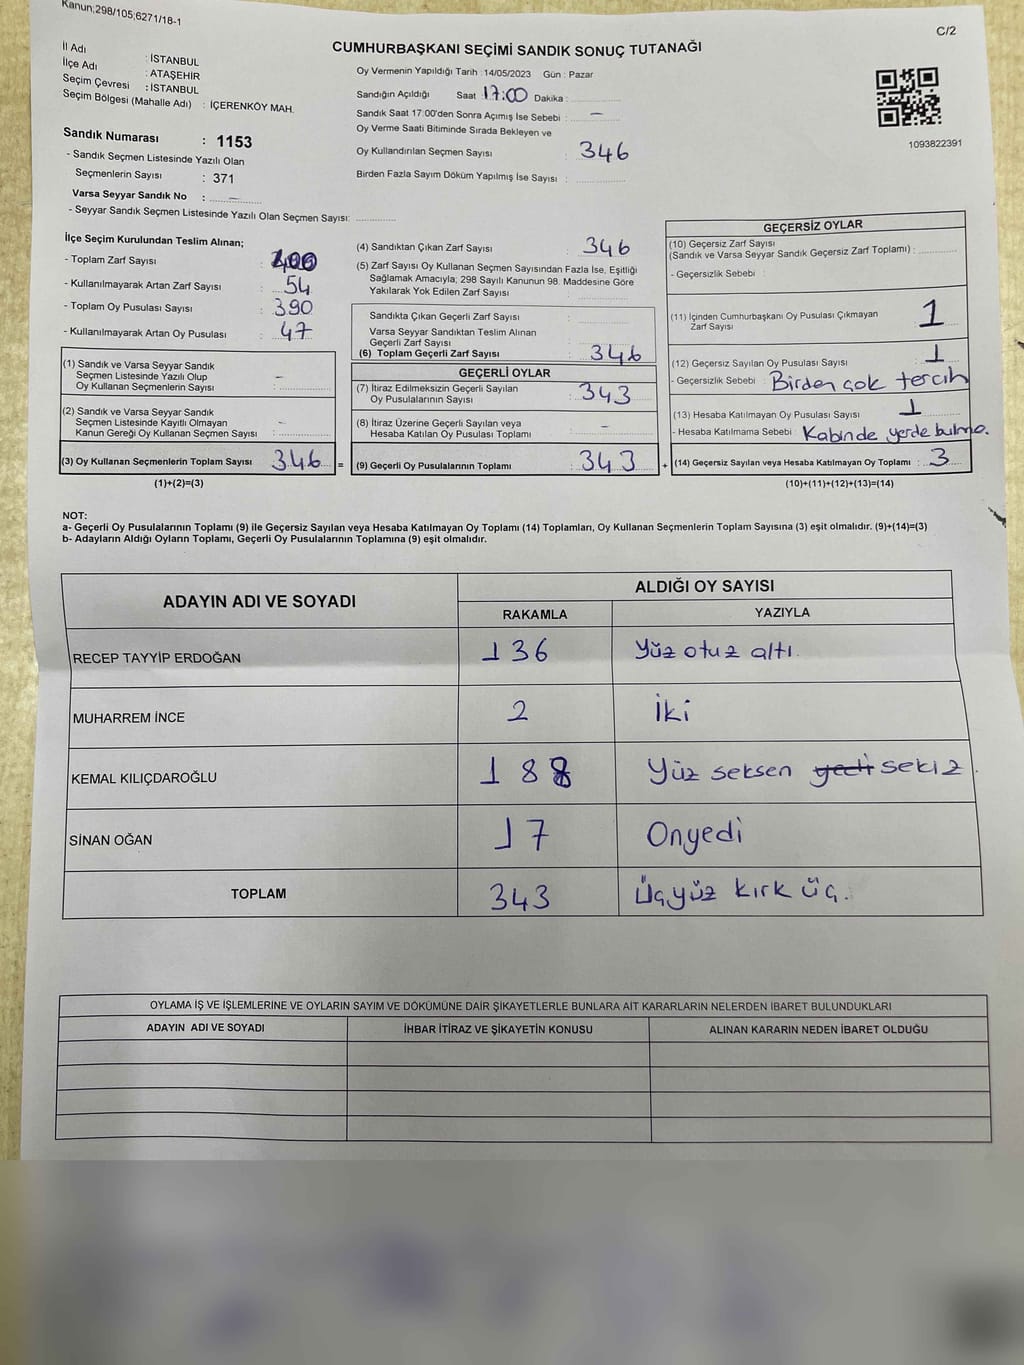 Kanun;298/105;6271/18-1
C/2
CUMHURBAŞKANI SEÇİMİ SANDIK SONUÇ TUTANAĞI
İl Adı : İSTANBUL
İlçe Adı : ATAŞEHİR
Seçim Çevresi : İSTANBUL
Seçim Bölgesi (Mahalle Adı) : İÇERENKÖY MAH.
Sandık Numarası : 1153
- Sandık Seçmen Listesinde Yazılı Olan
Seçmenlerin Sayısı : 371
Varsa Seyyar Sandık No : –
- Seyyar Sandık Seçmen Listesinde Yazılı Olan Seçmen Sayısı:
Oy Vermenin Yapıldığı Tarih :14/05/2023 Gün : Pazar
Sandığın Açıldığı Saat 17:00 Dakika :
Sandık Saat 17:00'den Sonra Açımış İse Sebebi : –
Oy Verme Saati Bitiminde Sırada Bekleyen ve
Oy Kullandırılan Seçmen Sayısı : 346
Birden Fazla Sayım Döküm Yapılmış İse Sayısı :
1093822391
İlçe Seçim Kurulundan Teslim Alınan;
- Toplam Zarf Sayısı : 400
- Kullanılmayarak Artan Zarf Sayısı : 54
- Toplam Oy Pusulası Sayısı : 390
- Kullanılmayarak Artan Oy Pusulası : 47
(1) Sandık ve Varsa Seyyar Sandık
Seçmen Listesinde Yazılı Olup
Oy Kullanan Seçmenlerin Sayısı : –
(2) Sandık ve Varsa Seyyar Sandık
Seçmen Listesinde Kayıtlı Olmayan
Kanun Gereği Oy Kullanan Seçmen Sayısı : –
(3) Oy Kullanan Seçmenlerin Toplam Sayısı 346 =
(1)+(2)=(3)
(4) Sandıktan Çıkan Zarf Sayısı : 346
(5) Zarf Sayısı Oy Kullanan Seçmen Sayısından Fazla İse, Eşitliği
Sağlamak Amacıyla; 298 Sayılı Kanunun 98. Maddesine Göre
Yakılarak Yok Edilen Zarf Sayısı :
Sandıkta Çıkan Geçerli Zarf Sayısı :
Varsa Seyyar Sandıktan Teslim Alınan
Geçerli Zarf Sayısı :
(6) Toplam Geçerli Zarf Sayısı : 346
GEÇERLİ OYLAR
(7) İtiraz Edilmeksizin Geçerli Sayılan
Oy Pusulalarının Sayısı : 343
(8) İtiraz Üzerine Geçerli Sayılan veya
Hesaba Katılan Oy Pusulası Toplamı : –
(9) Geçerli Oy Pusulalarının Toplamı : 343 +
GEÇERSİZ OYLAR
(10) Geçersiz Zarf Sayısı
(Sandık ve Varsa Seyyar Sandık Geçersiz Zarf Toplamı) :
- Geçersizlik Sebebi :
(11) İçinden Cumhurbaşkanı Oy Pusulası Çıkmayan
Zarf Sayısı : 1
(12) Geçersiz Sayılan Oy Pusulası Sayısı : 1
- Geçersizlik Sebebi : Birden çok tercih
(13) Hesaba Katılmayan Oy Pusulası Sayısı : 1
- Hesaba Katılmama Sebebi : Kabinde yerde bulma.
(14) Geçersiz Sayılan veya Hesaba Katılmayan Oy Toplamı : 3
(10)+(11)+(12)+(13)=(14)
NOT:
a- Geçerli Oy Pusulalarının Toplamı (9) ile Geçersiz Sayılan veya Hesaba Katılmayan Oy Toplamı (14) Toplamları, Oy Kullanan Seçmenlerin Toplam Sayısına (3) eşit olmalıdır. (9)+(14)=(3)
b- Adayların Aldığı Oyların Toplamı, Geçerli Oy Pusulalarının Toplamına (9) eşit olmalıdır.
ADAYIN ADI VE SOYADI ALDIĞI OY SAYISI
RAKAMLA YAZIYLA
RECEP TAYYİP ERDOĞAN 136 Yüz otuz altı.
MUHARREM İNCE 2 İki
KEMAL KILIÇDAROĞLU 188 Yüz seksen yedi sekiz
SİNAN OĞAN 17 Onyedi
TOPLAM 343 Üçyüz kırk üç.
OYLAMA İŞ VE İŞLEMLERİNE VE OYLARIN SAYIM VE DÖKÜMÜNE DAİR ŞİKAYETLERLE BUNLARA AİT KARARLARIN NELERDEN İBARET BULUNDUKLARI
ADAYIN ADI VE SOYADI İHBAR İTİRAZ VE ŞİKAYETİN KONUSU ALINAN KARARIN NEDEN İBARET OLDUĞU